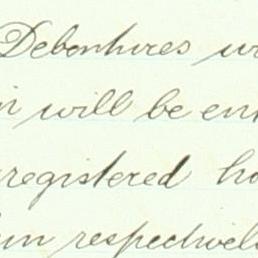 Debentures w
in will be en
registered ho
respectivel